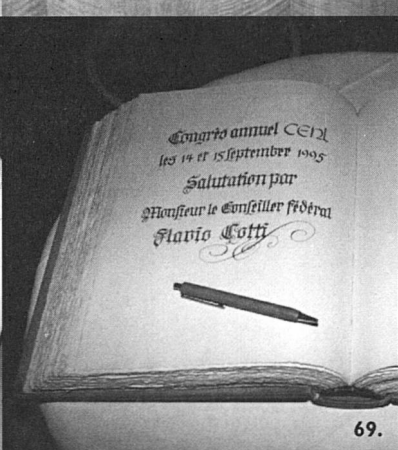 Congrès annuel CENL
les 14 et 15 septembre 1995
Salutation par
Monsieur le Conseiller fédéral
Flavio Cotti
69.